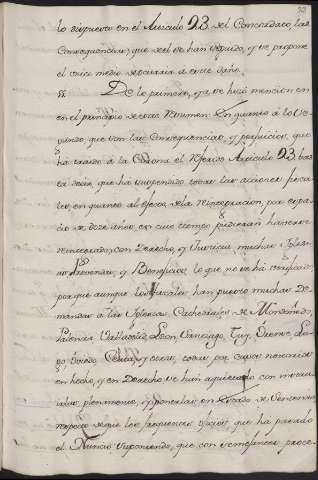 lo dispuesto en el Articulo 23 del Concordato, las
consequencias, que de el se han seguido, y se propone
el unico medio de ocurrir a este daño.
§§ De lo primero, ya se hizo mencion en
en el principio de este Resumen. En quanto à lo Se-
gundo que son las consequencias, y perjuicios, que
ha traido à la Corona el referido Articulo 23 bas-
ta decir, que ha suspendido todas las acciones fisca-
les, en quanto al efecto de la reintegracion, por espa-
cio de doze años, en cuio tiempo pudieran haverse
reintegrado, con Derecho, y Justicia muchas Iglesias
Prevendas, y Beneficios, lo que no se ha verificado,
porque aunque los Fiscales han puesto muchas De-
mandas à las Iglesias Cathedrales de Mondoñedo,
Palencia Valladolid, Leon, Santiago, Tuy, Orense, Lu-
go Oviedo, y otras, todas por casos notorios
en hecho, y en Derecho se han
plenamente, y ponerlas en estado de Sentencia
respecto de que los frequentes oficios, que ha pasado
el Nuncio suponiendo, que con semejantes proce-